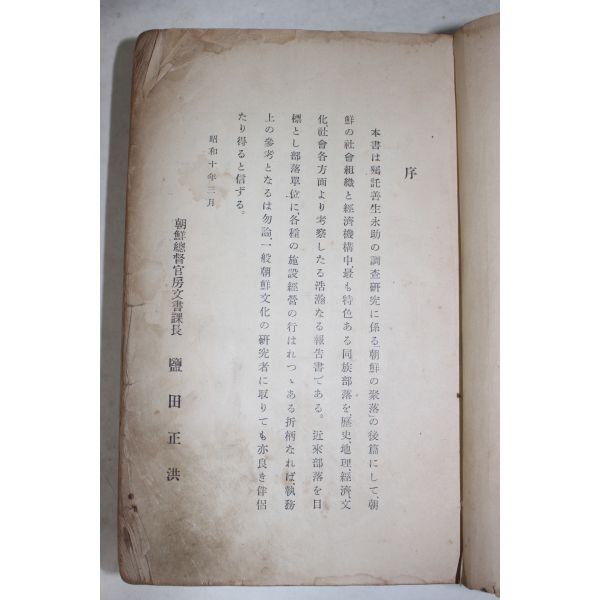 序
本書は囑託善生永助の調査硏究に係る「朝鮮の聚落」の後篇にして、朝
鮮の社會組織と經濟機構中、最も特色ある同族部落を、歷史、地理、經濟、文
化、社會各方面より考察したる浩瀚なる報吿書である。近來部落を目
標とし部落單位に、各種の施設經營の行はれつゝある折柄なれば、執務
上の參考となるは勿論、一般朝鮮文化の硏究者に取りても亦良き伴侶
たり得ると信ずる。
昭和十年三月
朝鮮總督官房文書課長 鹽田正洪